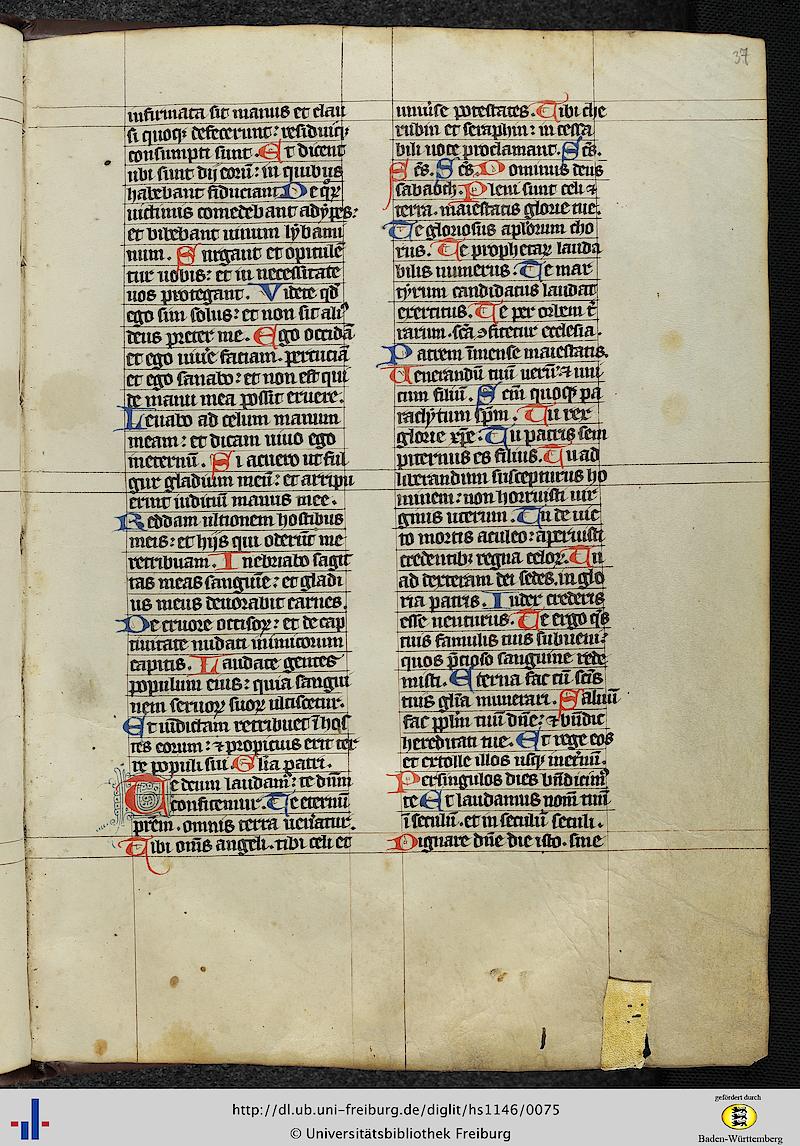 37
infirmata sit manus et clau
si quoqꝫ defecerunt: residuiqꝫ
consumpti sunt. Et dicent
ubi sunt dij eorū: in quibus
habebant fiduciam De qꝝ
uictimis comedebant adypes:
et bibebant uinum lybami
num. Surgant et opitulē
tur uobis: et in necessitate
uos protegant. Videte qd̄
ego sim solus: et non sit aliꝰ
deus preter me. Ego occidā
et ego uiuˀe faciam. percuciā
et ego sanabo: et non est qui
de manu mea possit eruere.
Leuabo ad celum manum
meam: et dicam uiuo ego
ineternū. Si acuero ut ful
gur gladium meū: et arripu
erint iuditiū manus mee.
Reddam ultionem hostibus
meis: et hijs qui oderūt me
retribuam. Inebriabo sagit
tas meas sanguīe: et gladi
us meus deuorabit carnes.
De cruore occisoꝝ: et de cap
tiuitate nudati inimicorum
capitis. Laudate gentes
populum eius: quia sangui
nem seruoꝝ suoꝝ ulciscetur.
Et uīdictam retribuet ī hos
tes eorum: ⁊ propicius erit ter
re populi sui. Glīa patri.
Te deum laudamꝰ: te dn̄m
confitemur. Te eternū
prēm. omnis terra ueꝰatur.
Tibi om̄s angeli. tibi celi et
uniuˀse potestates. Tibi che
rubin et seraphin: in cessa
bili uoce proclamant. Sc̄s.
Sc̄s. Sc̄s. Dominus deus
sabaoth. Pleni sunt celi ⁊
terra. maiestatis glorie tue.
Te gloriosus apl̄orum cho
rus. Te prophetaꝝ lauda
bilis numerus. Te mar
tyrum candidatus laudat
exercitus. Te per orbem t̄
rarum. sc̄a ꝯfitetur ecclesia.
Patrem īmense maiestatis.
Uenerandū tuū uerū ⁊ uni
cum filiū. Sc̄m quoqꝫ pa
raclytum sp̄m. Tu rex
glorie xp̄e. Tu patris sem
piternus es filius. Tu ad
liberandum suscepturus ho
minem: non horruisti uir
ginis uterum. Tu deuic
to mortis aculeo: aperuisti
credentibꝫ regna celoꝝ. Tu
ad dexteram dei sedes. in glo
ria patris. Iudex crederis
esse uenturus. Te ergo qs̄
tuis famulis tuis subueni:
quos p̄cioso sanguine rede
misti. Eterna fac cū sc̄is
tuis glīa munerari. Saluū
fac pplm̄ tuū dn̄e: ⁊ bn̄dic
hereditati tue. Et rege eos
et extolle illos usqꝫ ineꝰnū.
Persingulos dies bn̄dicimꝰ
te Et laudamus nom̄ tuū
ī seculū. et in seculū seculi.
Dignare dn̄e die isto. sine
http://dl.ub.uni-freiburg.de/diglit/hs1146/0075
© Universitätsbibliothek Freiburg
gefördert durch
Baden-Württemberg